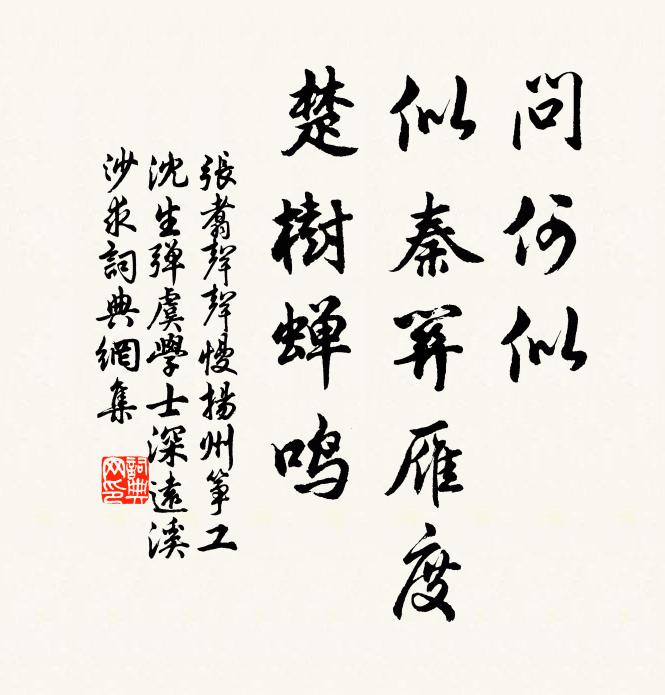 問何似
似秦關雁度
楚樹蟬鳴
張翥聲聲慢揚州箏工
沈生彈虞學士深遠溪
沙求詞典網集
詞典
网印